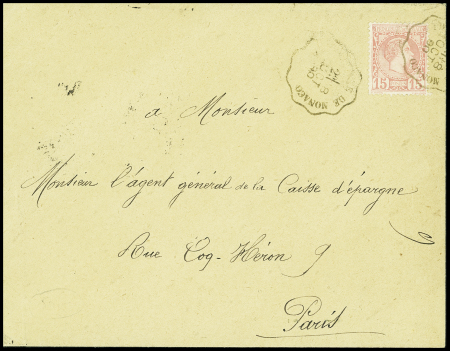 DE MONACO
OCT
15 15
MONACO
à Monsieur
Monsieur l'agent général de la Caisse d'épargne
Rue Coq-Héron 9
Paris